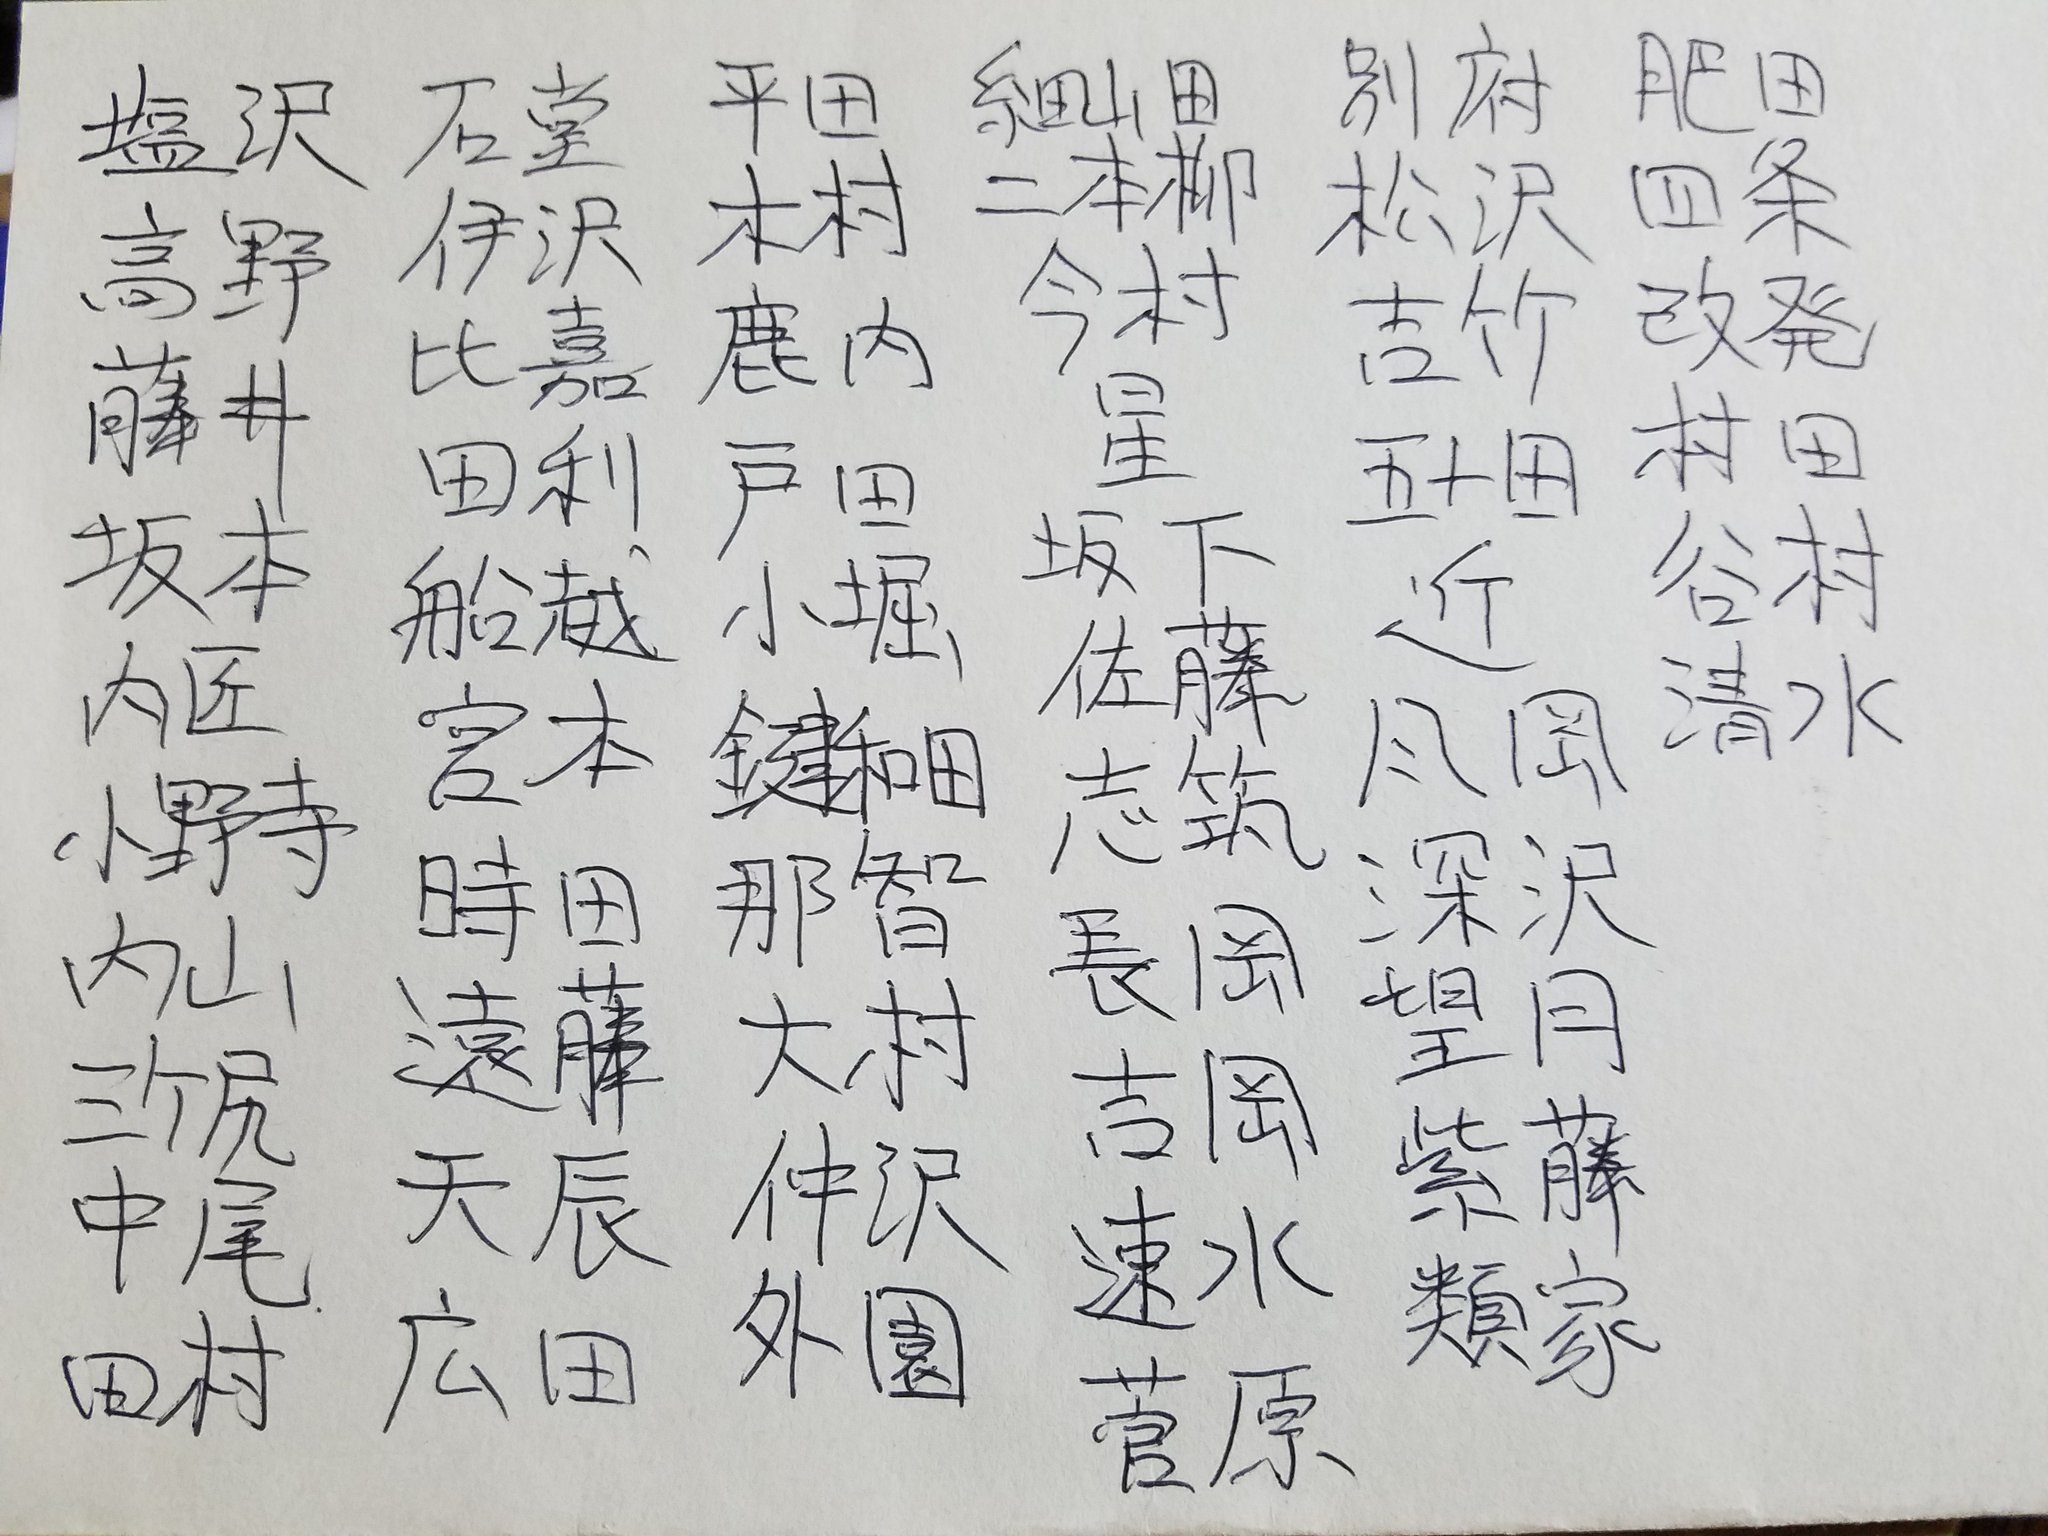 塩沢
高野
藤井
坂本
内匠
小野寺
内山
三ケ尻
中尾
田村
石堂
伊沢
比嘉
田利
船越
宮本
時田
遠藤
天辰
広田
平田
木村
鹿内
戸田
小堀
鍵和田
那智
大村
仲沢
外園
細山田
二本柳
今村
星
坂下
佐藤
志筑
長岡
吉岡
速水
菅原
別府
松沢
吉竹
五十田
近
岡
深沢
望月
紫藤
類家
肥田
四条
改発
村田
谷村
清水